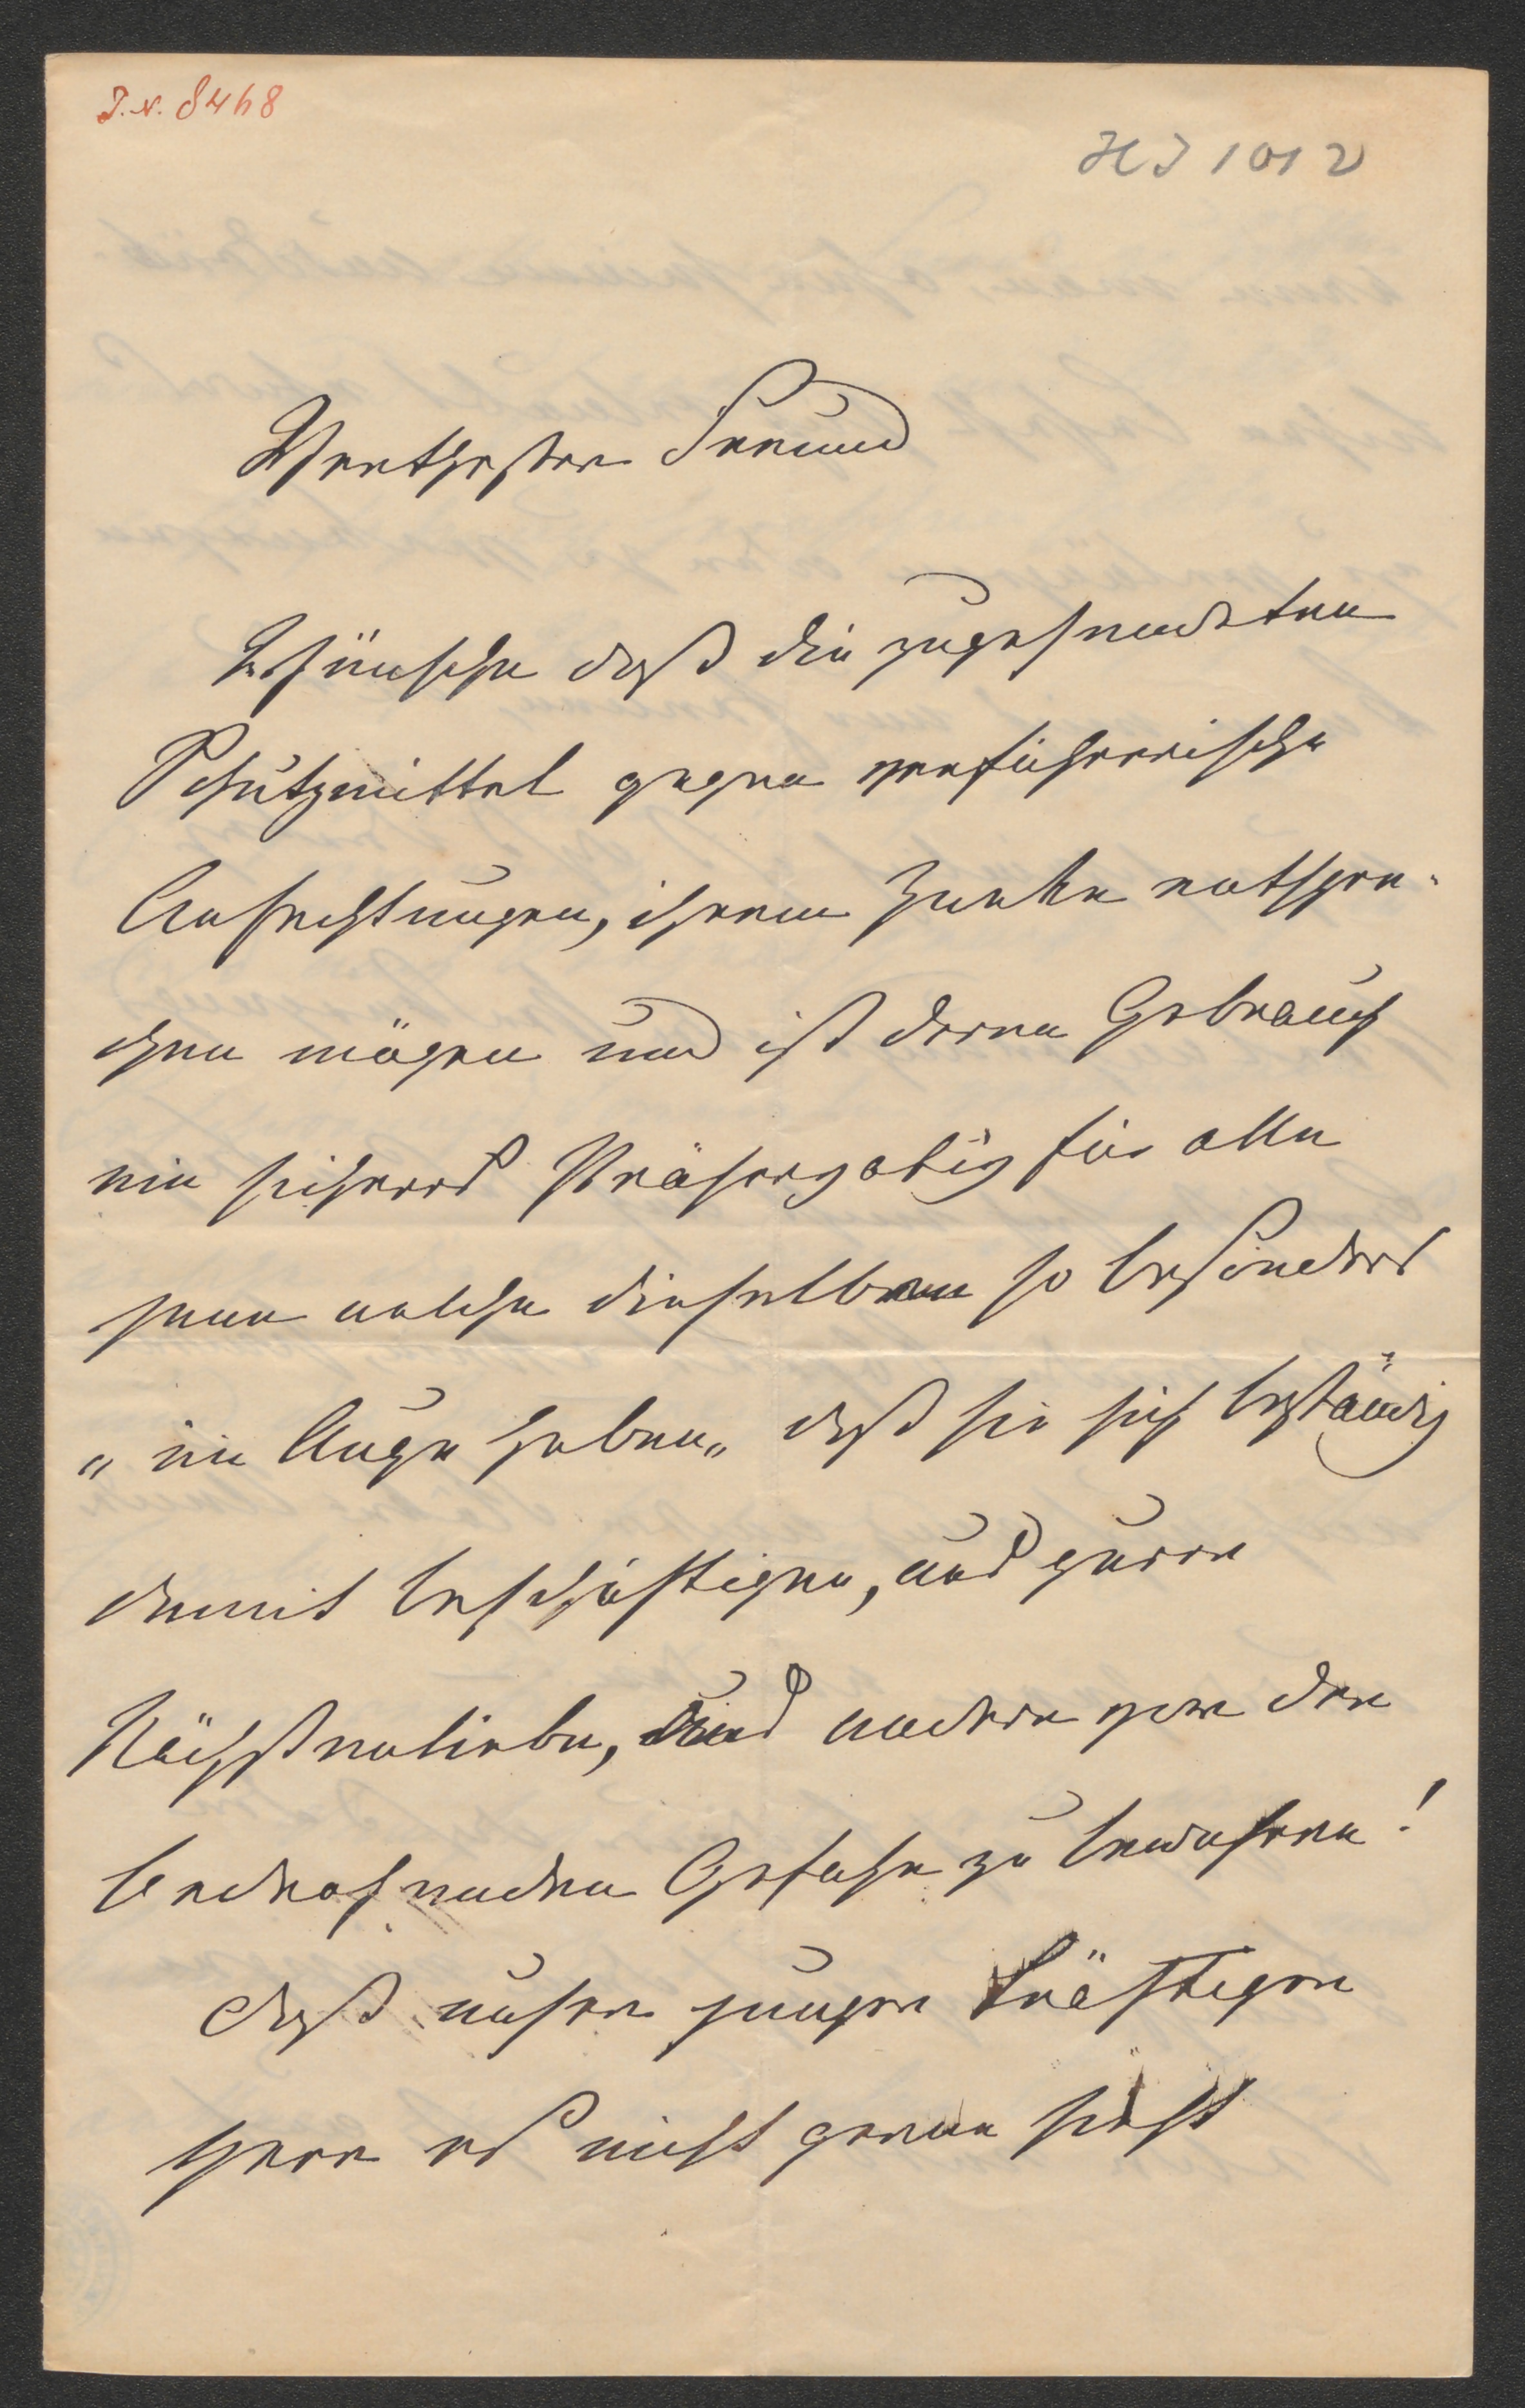 I.N. 8468
HI 1012
Werthester Freund
Wünsche daß die zugesendeten
Schutzmittel gegen verführerische
Anfechtungen, ihrem Zwecke entspre-
chen mögen und ist deren Gebrauch
ein sicheres Präservativ für alle
jene welche dieselben so besonders
"im Auge haben" daß sie sich beständig
damit beschäftigen, aus purer
Nächstenliebe, und andere vor der
bedrohenden Gefahr zu bewahren!
daß unser junger kräftiger
Herr es nicht gerne sieht